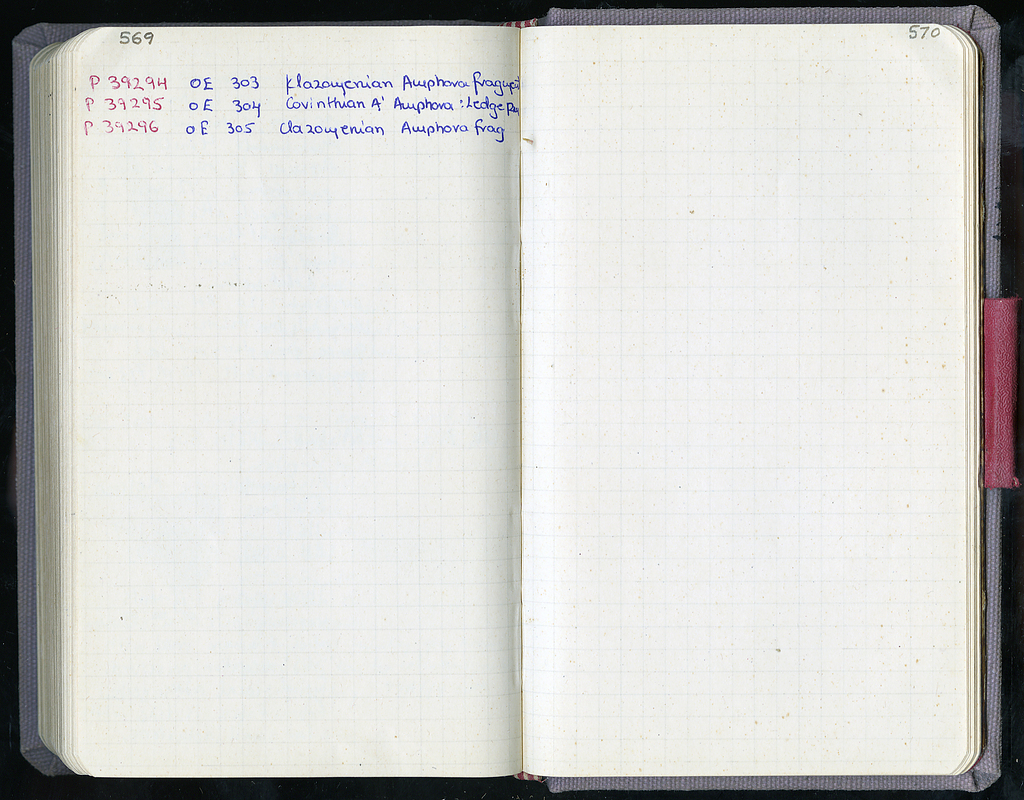 569
570
P 39294 OE 303 Klazomenian Amphora
P 39295 OE 304 Corinthian A' Amphora : Ledge
P 39296 OE 305 Clazomenian Amphora frag